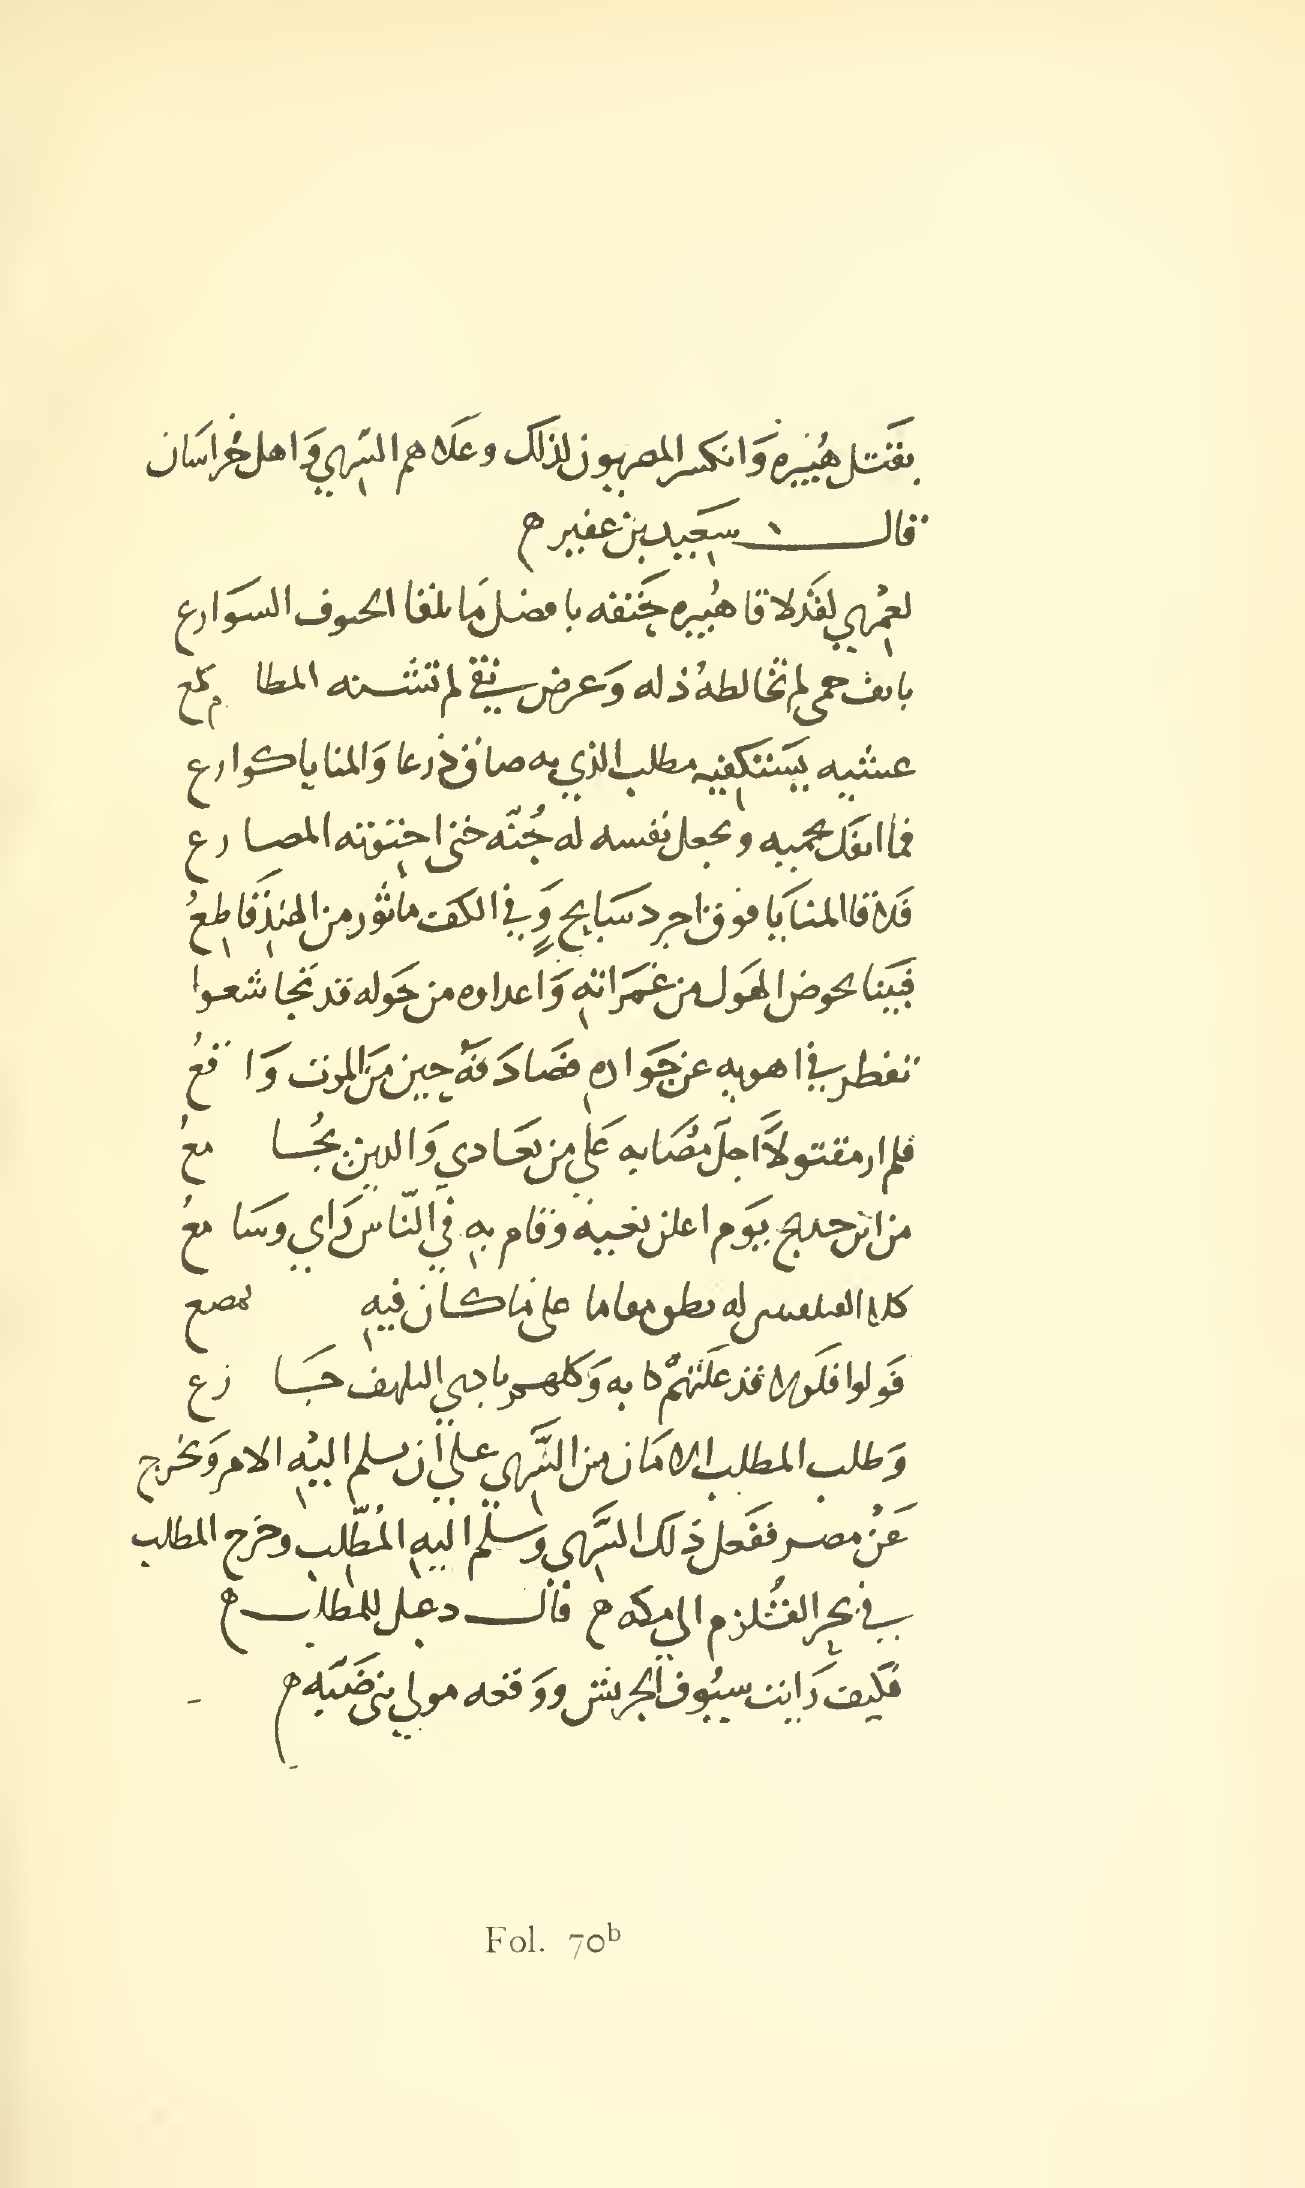 بقتل هُبَيْره وَانكسر المصريون لذلك وعَلاهم السَّري وَاهل خُراسَان
قال سَعيد بن عفير ه
لعَمْري لقَد لاقا هُبيره حَتفه بافضل مَا يلقا الحتوف السوَارع
بانف حمى لم تخالطهُ ذله وَعرض نقي لم تشنه المطامع
عشيه يَستكفيه مطلب الذي به صاق ذرعا وَالمنايا كوارع
فما انفَك يحميه ويجعل نفسه له جُنّه حتى احتوته المصارع
فَلاقا المنَايَا فوق اجرد سَابح وَفي الكف ماثُور من الهندِ قاطعُ
فبَينا يخوض الهَول من غمَراتهِ وَاعداوه من حَوله قد تجاشعوا
تفطر في اهويه عن جَوادهِ فصَادَفهُ حين من الموت وَاقعُ
فلم ار مقتولاً اجلَّ مصَابه عَلى من يعَادي وَالدين يُجامعُ
من ابن حديج يَوم اعلن نعيه وقام به في النّاس رَاي وسَامعُ
على ما كان فيهِ
قَولوا فلَولا قد عَلتهُمْ
وَطلب المطلب الامَان من السَّري على أن يسلم اليْهِ الامر وَيخرج
عَنْ مصر ففعَل ذلك السَّري وسلَّم اليهِ المُطّلب وخرَج المطلب
في بحر القُلزم الي مكه ه قال دعبل للمطلب ه
فكَيف رَايت سيُوف الحريش ووَقعه مولي بني ضَبَّه ه
Fol. 70b